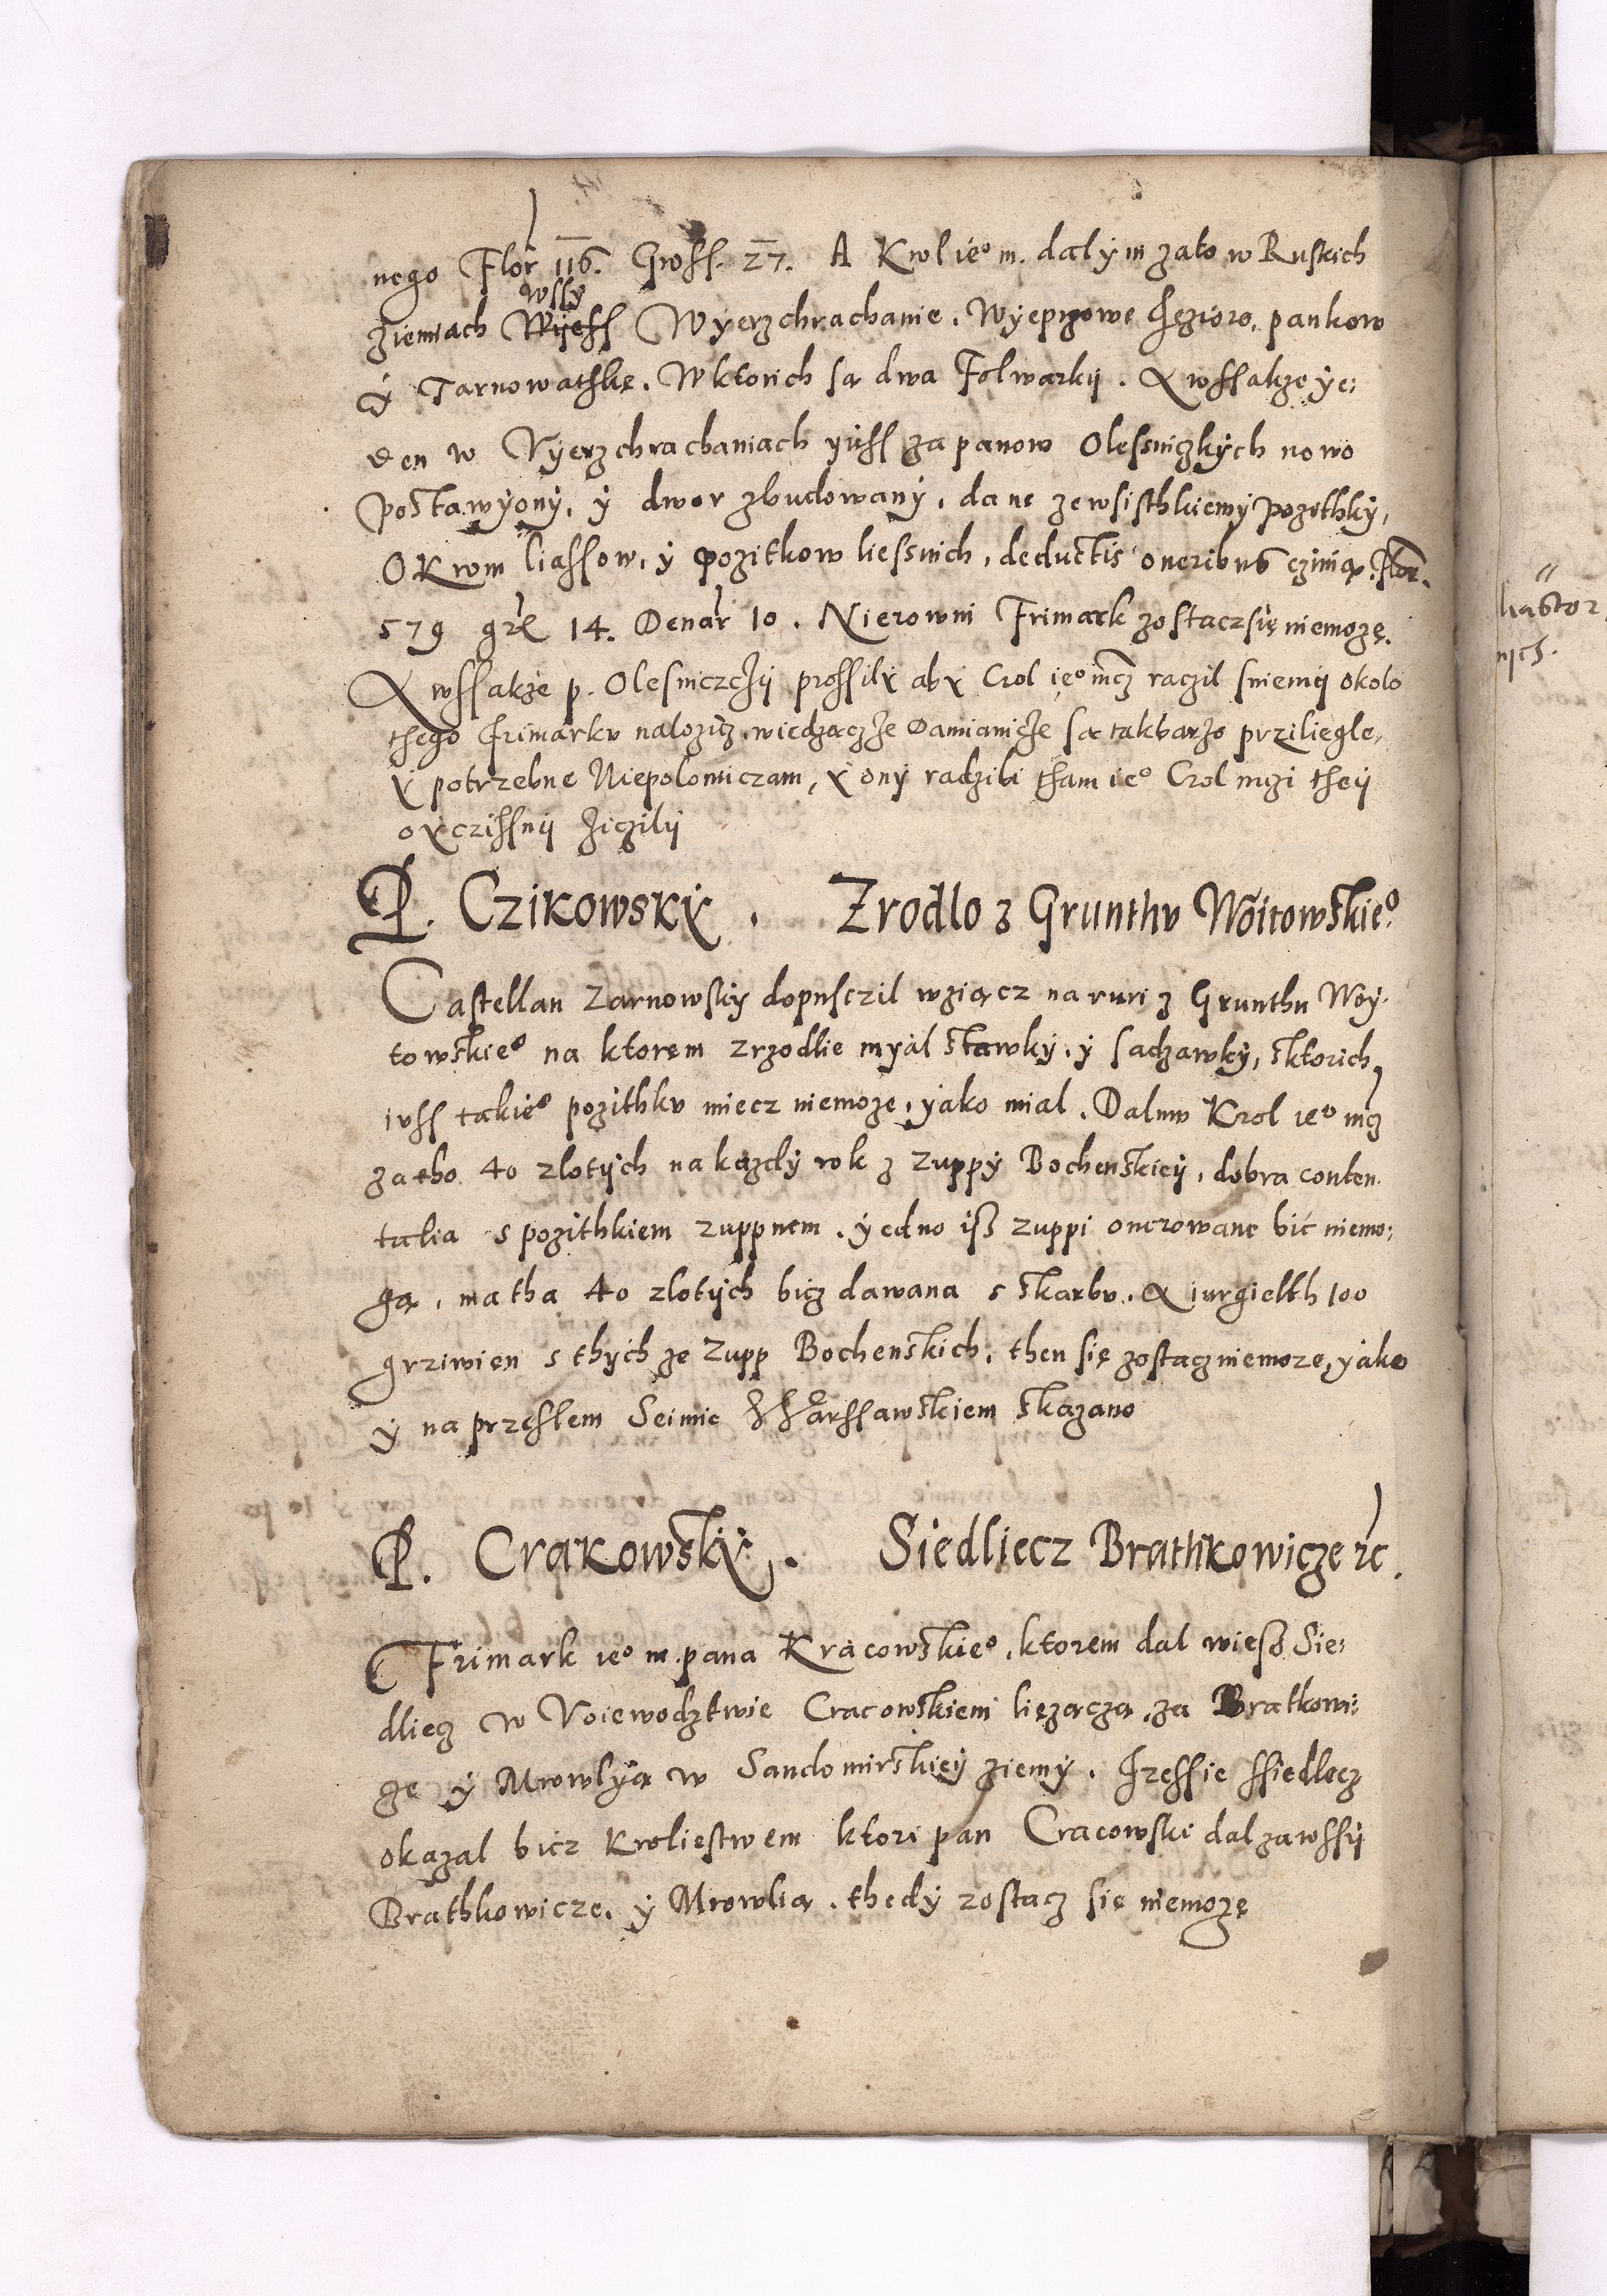 nego Flor 116. Gross. 27. A Krol ieº m. dal ÿm zato w Ruskich
wssÿ
Ziemiach Wÿess Wÿerzchrachanie. Wÿeprzowe Jezioro, pankow
ÿ Tarnowathkę. W ktorich są dwa Folwarkij. A wssakze ÿe:
den w Vÿerzchrachaniach ÿuss za panow Olessniczkÿch nowo
postawÿonÿ, ÿ dwor zbudowanÿ, dane zewsisthkiemÿ pozithkÿ,
Okrom liassow, ÿ pozitkow liessnich, deductis oneribus czinią Flor.
579 grž 14. Denar 10. Nierowni Frimark zostacz się niemozę.
A wssakże p. Olesniczcÿ prossilÿ abÿ Crol ieº mcz raczil sniemij okolo
thego frimarku nalozicz, wiedzacz że Damianicze są tak barzo przilieglе,
ÿ potrzebne Niepolomiczam, ÿ onÿ radzibi tham ieº Crol mczi theij
oÿczissnij ziczilij
P. Czikowskÿ. Zrodlo z Grunthu Woitowskieº
Castellan Zarnowskÿ dopusczil wziącz na ruri z Grunthu Woÿ-
towskieº na ktorem zrzodlie mÿal stawkÿ, ÿ sadzawkÿ, sktorich
iuss takieº pozithku miecz niemoze, ÿako mial. Dal mu Krol ieº mcz
za tho 40 zlotÿch na kazdÿ rok z zuppÿ Bochenskieÿ, dobra conten-
talia s pozithkiem zuppnem. ÿedno iß zuppi onerowane bić niemo:
gą, ma tha 40 zlotÿch bicz dawana s skarbu. A iurgielth 100
grziwien s thÿch ze zupp Bochenskich, then się zostacz niemoze, ÿako
ÿ na przeslem Seimie Warssawskiem skazano
P. Crakowskÿ. Siedliecz Brathkowicze ꝛc.
Frimark ieº m. pana Kracowskieº, ktorem dal wieß Sie:
dliecz w Voiewodztwie Cracowskiem liezącza, za Bratkowi:
ze ÿ Mrowlÿą w Sandomirskieÿ ziemÿ. Jzessie ssiedlecz
okazal bicz Kroliestwem ktori pan Cracowski dal za wssij
Brathkowicze, ÿ Mrowlią. thedÿ zostacz się niemozę